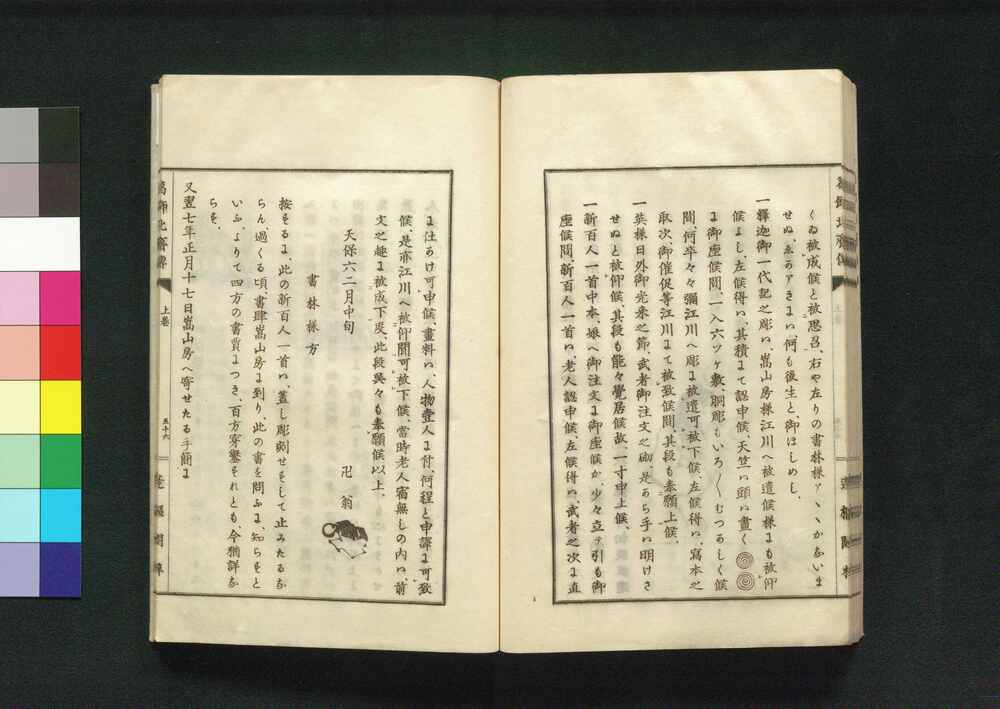 くゐ被成候と被思召、石や左りの書林様アヽヽかないま
せぬ、ゑのアきまハ、何も後生と、御はしめし、
一釋迦御一代記之彫ハ、嵩山房様江川へ被遣候様ニも被仰
候よし、左候得ハ、其積ニて認申候、天竺ハ頭ハ畫く
ニ御座候間、一人六ツヶ敷、胴彫もいろ〳〵むつかしく候
間、何卒々々彌江川へ彫ニ被遣可被下候左候得ハ、寫本之
取次御催促等江川ニて被致候間、其段も奉願上候、
一英様日外御光来之節、武者御注文之砌、是あら手ハ明けさ
せぬと被仰候、其段も能々覺居候故一寸申上候、
一新百人一首中本、娘へ御注文ニ御座候か、少々立テ引も御
座候間、新百人一首ハ、老人認申候、左候得ハ、武者之次ニ直
ニ仕あけ可申候、畫料ハ、人物壹人ニ付、何程と申譯ニ可致
候、是亦江川へ被仰聞可被下候、當時老人宿無しの内ハ、前
文之趣ニ被成下度、此段呉々も奉願候以上、
天保六二月中旬
卍翁
書林様方
按するに、此の新百人一首ハ、蓋し彫刻せすして止みたるな
らん、過くる頃、書肆嵩山房に到り、此の書を問ふに、知らすと
いふ、よりて四方の書賈につき、百方穿鑿すれとも、今猶詳な
らす、
又翌七年正月十七日嵩山房へ寄せたる手簡に
上巻
五十六